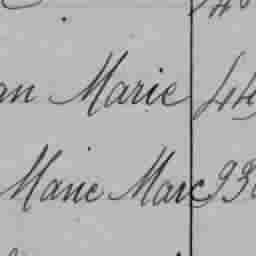 an Marie 44
Marie Marc 93